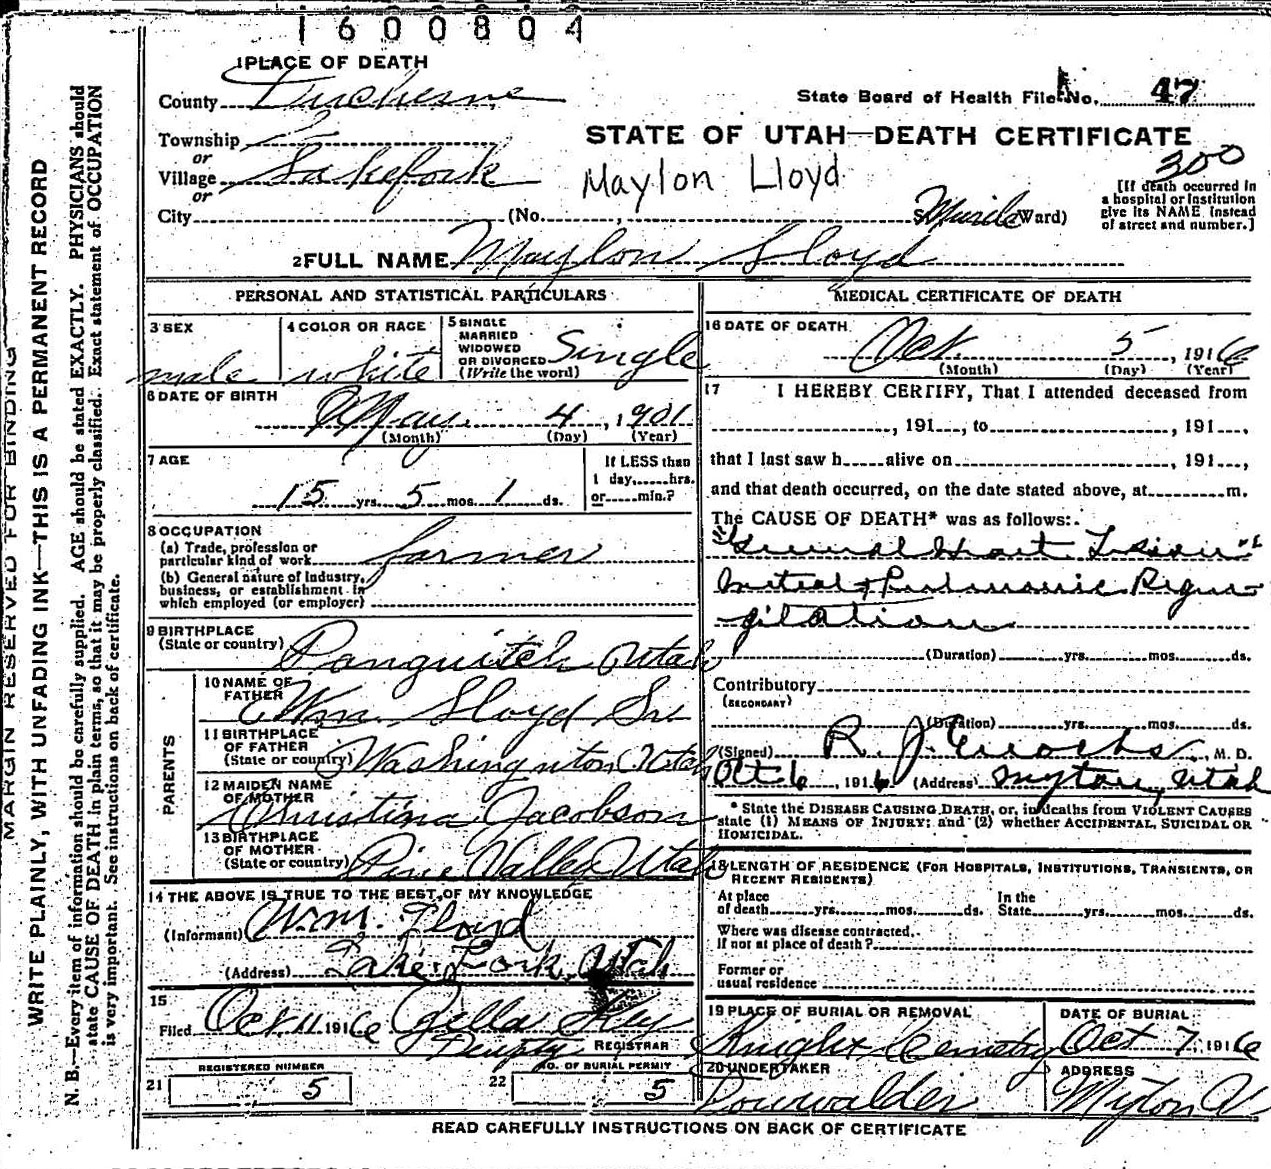 1600804
1 PLACE OF DEATH
County Duchesne
State Board of Health File No. 47
Township
or
Village Lakefork
or
STATE OF UTAH—DEATH CERTIFICATE
Maylon Lloyd
300
[If death occurred in a hospital or institution give its NAME instead of street and number.]
City (No. , Ward)
2 FULL NAME Maylon Lloyd
PERSONAL AND STATISTICAL PARTICULARS
3 SEX male
4 COLOR OR RACE white
5 SINGLE MARRIED WIDOWED OR DIVORCED (Write the word) Single
6 DATE OF BIRTH May 4, 1901
(Month) (Day) (Year)
7 AGE
15 yrs. 5 mos. 1 ds.
If LESS than 1 day, hrs. or min.?
8 OCCUPATION
(a) Trade, profession or particular kind of work farmer
(b) General nature of industry, business, or establishment in which employed (or employer)
9 BIRTHPLACE (State or country) Panguitch Utah
PARENTS
10 NAME OF FATHER Wm. Lloyd Sr
11 BIRTHPLACE OF FATHER (State or country) Washington Utah
12 MAIDEN NAME OF MOTHER Christina Jacobson
13 BIRTHPLACE OF MOTHER (State or country) Pine Valley Utah
14 THE ABOVE IS TRUE TO THE BEST OF MY KNOWLEDGE
(Informant) W.M. Lloyd
(Address) Lake Fork, Utah
15
Filed Oct 11 1916 Zella
Deupty REGISTRAR
21 REGISTERED NUMBER 5
22 NO. OF BURIAL PERMIT 5
MEDICAL CERTIFICATE OF DEATH
16 DATE OF DEATH Oct. 5, 1916
(Month) (Day) (Year)
17 I HEREBY CERTIFY, That I attended deceased from
, 191 , to , 191 ,
that I last saw h alive on , 191 ,
and that death occurred, on the date stated above, at m.
The CAUSE OF DEATH* was as follows:
Heart Lesion
Mitral + Pulmonic Regur-
gitation
(Duration) yrs. mos. ds.
Contributory
(SECONDARY)
(Duration) yrs. mos. ds.
(Signed) R. J. M. D.
Oct 6, 1916 (Address) Myton, Utah
* State the DISEASE CAUSING DEATH, or, in deaths from VIOLENT CAUSES
state (1) MEANS OF INJURY; and (2) whether ACCIDENTAL, SUICIDAL OR
HOMICIDAL.
18 LENGTH OF RESIDENCE (FOR HOSPITALS, INSTITUTIONS, TRANSIENTS, OR
RECENT RESIDENTS)
At place of death yrs. mos. ds. In the State yrs. mos. ds.
Where was disease contracted,
If not at place of death?
Former or
usual residence
19 PLACE OF BURIAL OR REMOVAL
Knight Cemetry
DATE OF BURIAL
Oct 7 1916
20 UNDERTAKER
ADDRESS
Myton U
READ CAREFULLY INSTRUCTIONS ON BACK OF CERTIFICATE
MARGIN RESERVED FOR BINDING
WRITE PLAINLY, WITH UNFADING INK—THIS IS A PERMANENT RECORD
N. B.—Every item of information should be carefully supplied. AGE should be stated EXACTLY. PHYSICIANS should
state CAUSE OF DEATH in plain terms, so that it may be properly classified. Exact statement of OCCUPATION
is very important. See instructions on back of certificate.